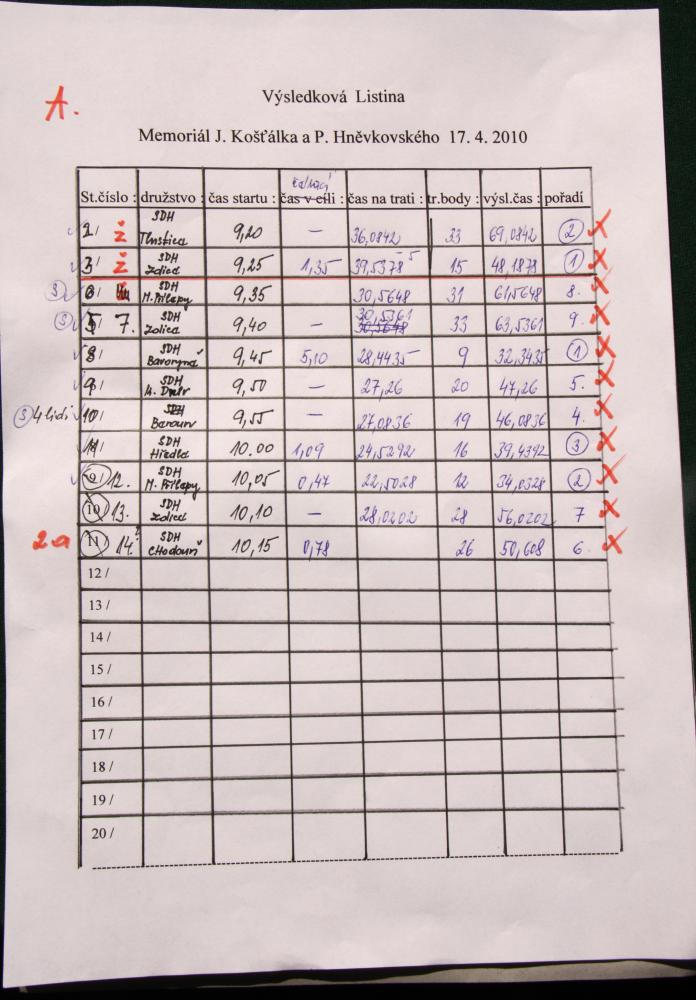 A.
Výsledková Listina
Memoriál J. Košťálka a P. Hněvkovského 17. 4. 2010
čekací
St.číslo : družstvo : čas startu : čas v cíli : čas na trati : tr.body : výsl.čas : pořadí
2/ ž SDH Tlustice 9,20 – 36,0842 33 69,0842 2 X
3/ ž SDH Zdice 9,25 1,35 39,5378 -5 15 48,1878 1 X
3 6/ SDH M.Přílepy 9,35 30,5648 31 61,5648 8. X
3 5/ 7. SDH Zdice 9,40 – 30,5361 30,5648 33 63,5361 9. X
8/ SDH 9,45 5,10 28,4435 9 32,3435 1 X
9/ SDH 9,50 – 27,26 20 47,26 5. X
3 4 lidi 10/ SDH Beroun 9,55 – 27,0836 19 46,0836 4. X
11/ SDH Hředle 10.00 1,09 24,5292 16 39,4392 3 X
9/ 12. SDH M. Přílepy 10,05 0,47 22,5028 12 34,0328 2 X
10/ 13. SDH Zdice 10,10 – 28,0202 28 56,0202 7 X
2a 11/ 14. SDH Chodouň 10,15 0,78 26 50,608 6. X
12 /
13 /
14 /
15 /
16 /
17 /
18 /
19 /
20 /